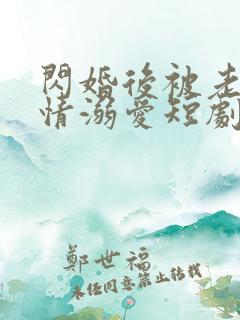 閃婚後被老
情溺愛短劇
鄭世福
未经同意禁止转载